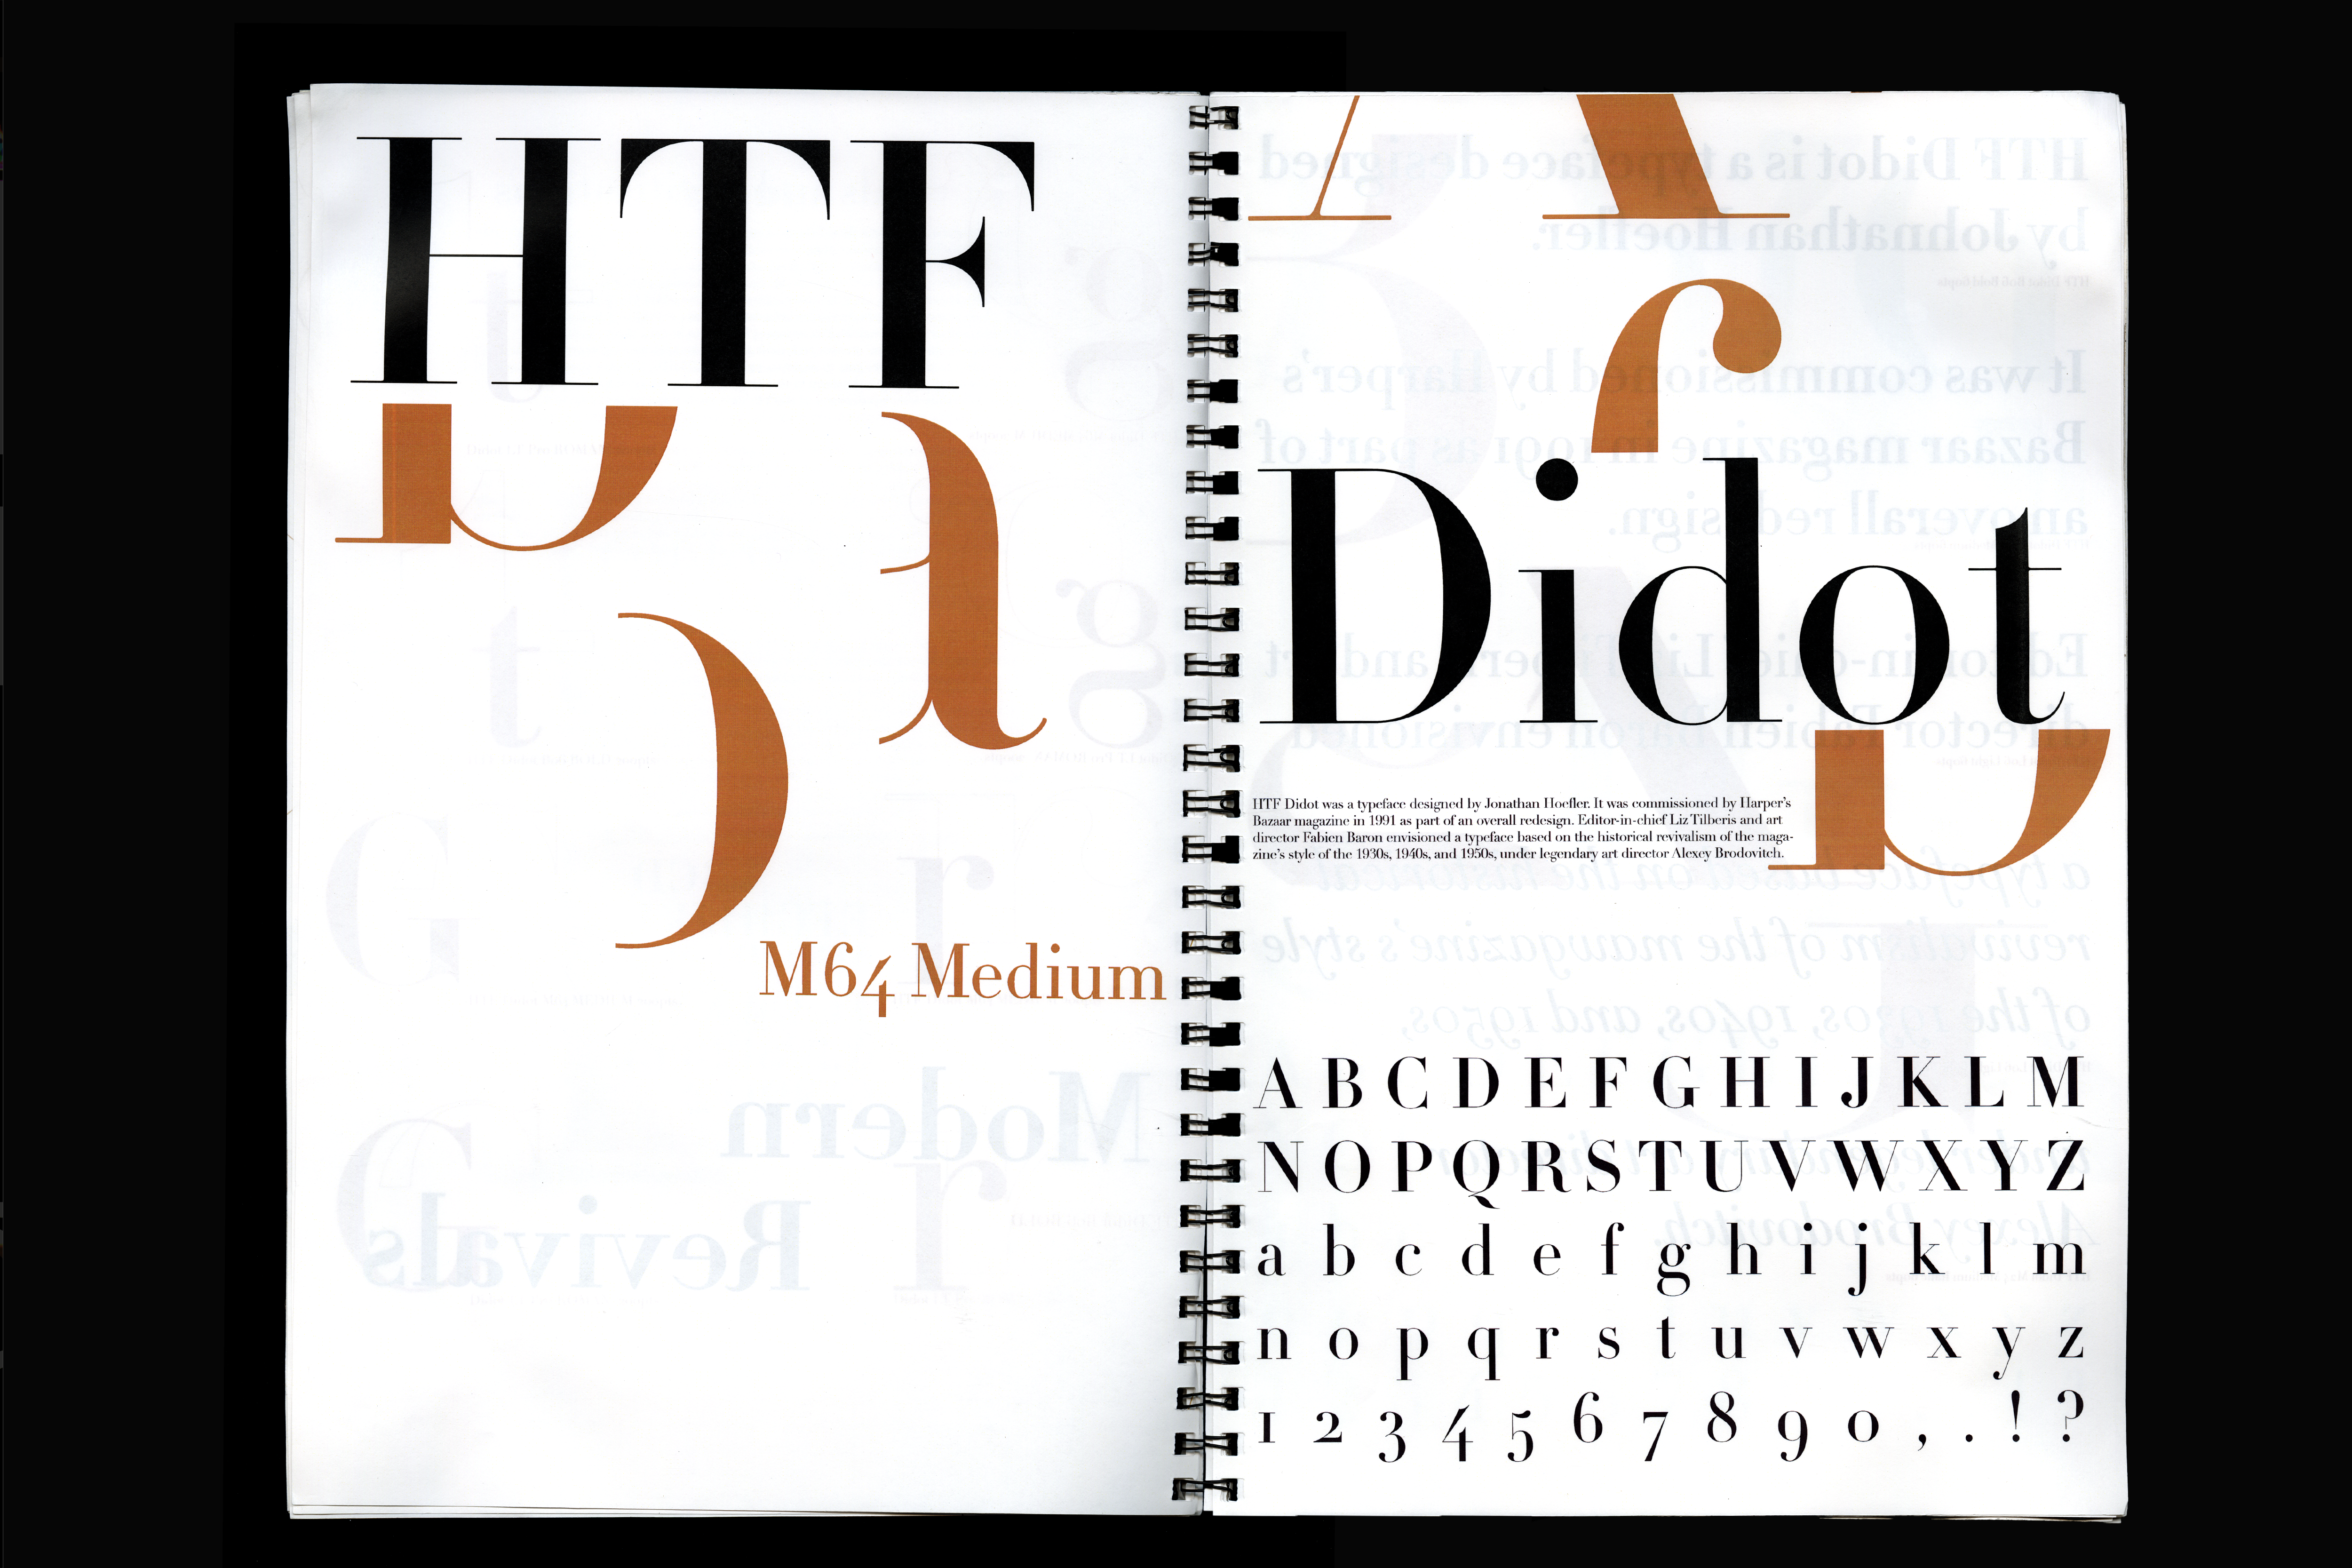 HTF
M64 Medium
A
f
Didot
HTF Didot was a typeface designed by Jonathan Hoefler. It was commissioned by Harper's
Bazaar magazine in 1991 as part of an overall redesign. Editor-in-chief Liz Tilberis and art
director Fabien Baron envisioned a typeface based on the historical revivalism of the maga-
zine's style of the 1930s, 1940s, and 1950s, under legendary art director Alexey Brodovitch.
A B C D E F G H I J K L M
N O P Q R S T U V W X Y Z
a b c d e f g h i j k l m
n o p q r s t u v w x y z
1 2 3 4 5 6 7 8 9 0 , . ! ?